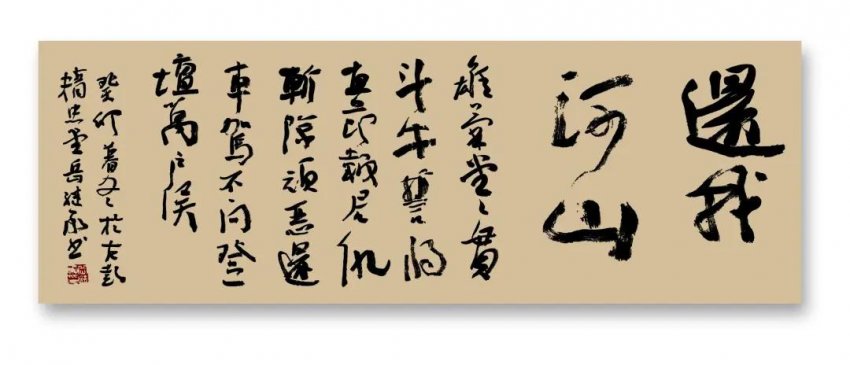 還我
河山
雄氣堂堂貫
斗牛誓將
直節報君仇
斬除頑惡還
車駕不問登
壇萬戶侯
癸卯暮冬於古彭
精忠堂岳書